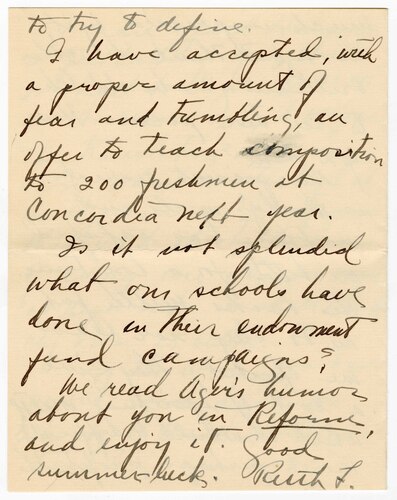 to try to define.
I have accepted, with
a proper amount of
fear and trembling, an
offer to teach composition
to 200 freshmen at
Concordia next year.
Is it not splendid
what our schools have
done in their endowment
fund campaigns?
We read Ager's humor
about you in Reform,
and enjoy it. Good
summer luck. Ruth F.